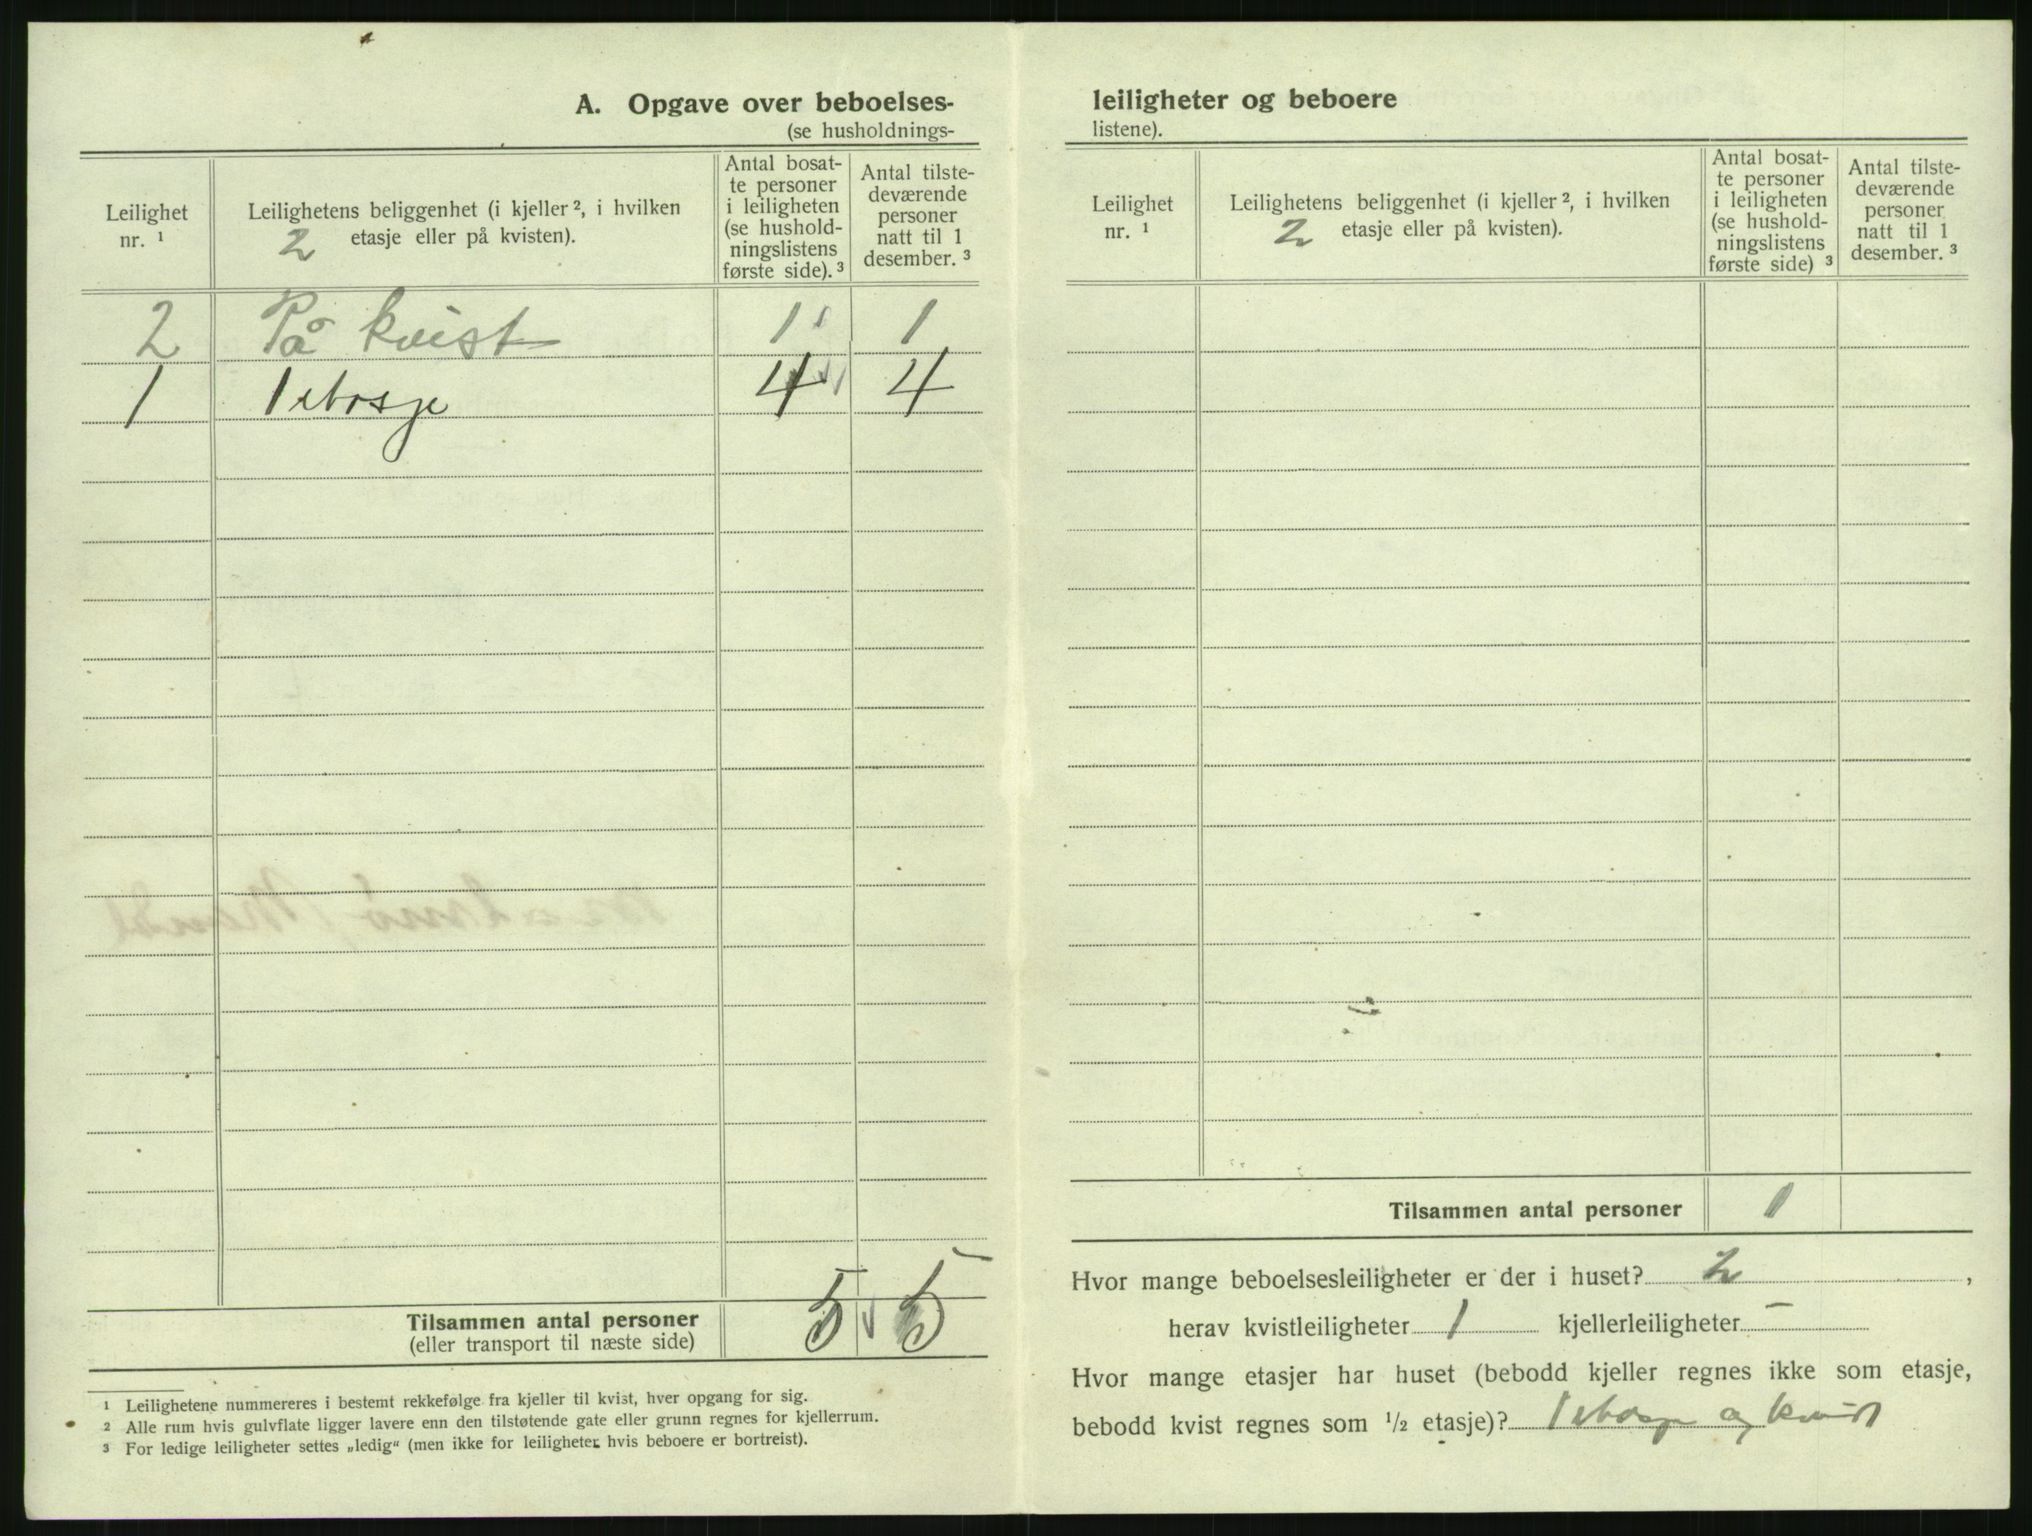 A. Opgave over beboelses-
(se husholdnings-
Leilighet nr. ¹
Leilighetens beliggenhet (i kjeller ², i hvilken
2 etasje eller på kvisten).
Antal bosat-
te personer
i leiligheten
(se hushold-
ningslistens
første side). ³
Antal tilste-
deværende
personer
natt til 1
desember. ³
2 På kvist 1 1
1 1 etasje 4 4
Tilsammen antal personer 5 5
(eller transport til næste side)
¹ Leilighetene nummereres i bestemt rekkefølge fra kjeller til kvist, hver opgang for sig.
² Alle rum hvis gulvflate ligger lavere enn den tilstøtende gate eller grunn regnes for kjellerrum.
³ For ledige leiligheter settes „ledig“ (men ikke for leiligheter hvis beboere er bortreist).
leiligheter og beboere
listene).
Leilighet nr. ¹
Leilighetens beliggenhet (i kjeller ², i hvilken
2 etasje eller på kvisten).
Antal bosat-
te personer
i leiligheten
(se hushold-
ningslistens
første side) ³
Antal tilste-
deværende
personer
natt til 1
desember. ³
Tilsammen antal personer 1
Hvor mange beboelsesleiligheter er der i huset? 2 ,
herav kvistleiligheter 1 kjellerleiligheter –
Hvor mange etasjer har huset (bebodd kjeller regnes ikke som etasje,
bebodd kvist regnes som ½ etasje)? 1 etasje og kvist